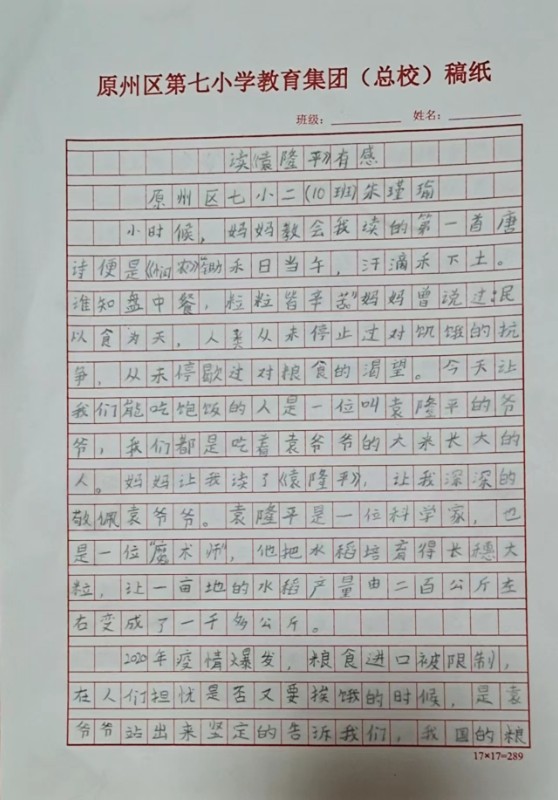 原州区第七小学教育集团（总校）稿纸
班级： 姓名：
读《袁隆平》有感
原州区七小二（10班）朱瑾瑜
小时候，妈妈教会我读的第一首唐
诗便是《悯农》“锄禾日当午，汗滴禾下土。
谁知盘中餐，粒粒皆辛苦”妈妈曾说过：民
以食为天，人类从未停止过对饥饿的抗
争，从未停歇过对粮食的渴望。今天让
我们能吃饱饭的人是一位叫袁隆平的爷
爷，我们都是吃着袁爷爷的大米长大的
人。妈妈让我读了《袁隆平》，让我深深的
敬佩袁爷爷。袁隆平是一位科学家，也
是一位“魔术师”，他把水稻培育得长穗大
粒，让一亩地的水稻产量由二百公斤左
右变成了一千多公斤。
2020年疫情爆发，粮食进口被限制，
在人们担忧是否又要挨饿的时候，是袁
爷爷站出来坚定的告诉我们，我国的粮
17×17=289